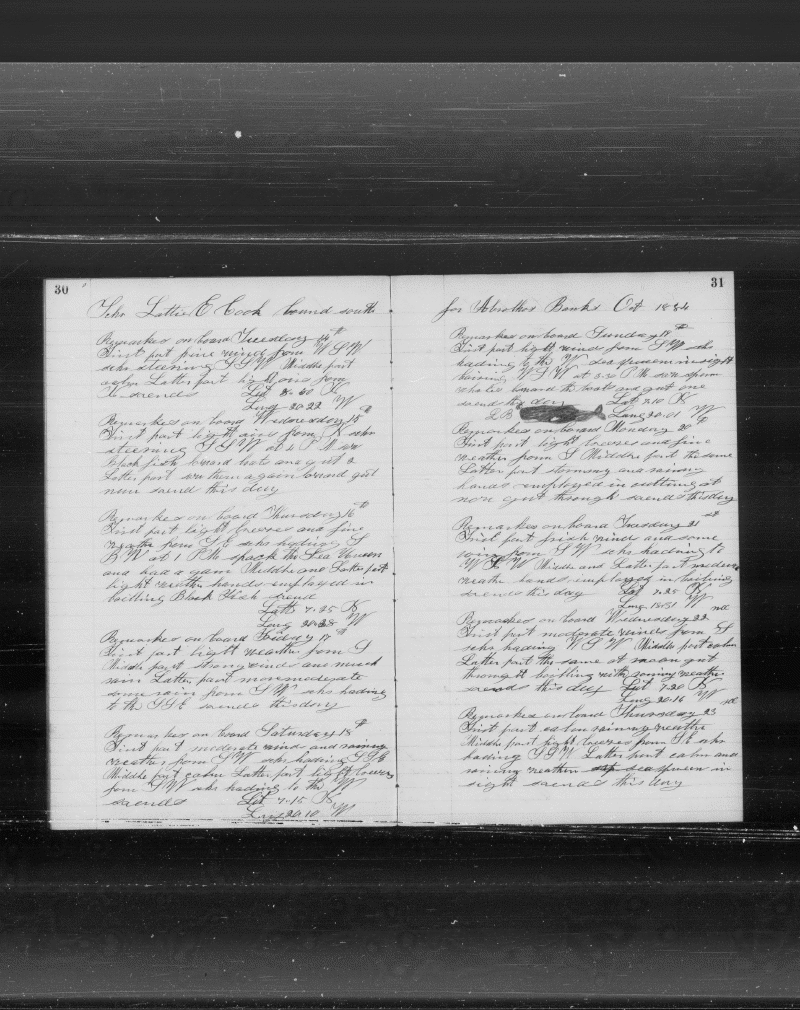 30
Schr Lottie E Cook bound south
Remarkes on board Tuesday 14th
First part fine winds from W S W
schr steering S S W Middle part
calm Latter part light airs from
So ends Lat 8-30 N
Long 20 22 W
Remarkes on board Wednesday 15th
First part light airs from schr
steering S S W at 4 P M we
black fish lowerd boats and got 2
Latter part we them again lowerd got
none soends this day
Remarkes on board Thursday 16th
First part light breezes and fine
weather from S E schr hading S
B W at 1 P M spack the Sea Queen
and had a gam Middle and Latter part
light weather hands employed in
boiling Black Fish soend
Latt 7-25 N
Long 20-28 W
Remarkes on board Friday 17th
First part light weather from S
Middle part strong winds and much
rain Latter part more moderate
some rain from S W schr hading
to the S S E soends this day
Remarkes on board Saturday 18th
First part moderate winds and rainny
weather from S W schr hading S S E
Middle part calm Latter part light breezes
from S W schr hading to the W
soends Lat 7-15 N
Long 20-10 W
31
for Abrothos Banks Oct 1884
Remarkes on board Sunday 19th
First part light winds from S W schr
hading to the W Sea Queen in sight
W S W at 3-30 P M sperm
whales lowerd the boats and got one
soends this day Lat 7-10 N
L B Long 20-01 W
Remarkes on board Monday 20th
First part light breezes and fine
weather from S Middle part the same
Latter part stormy and rainny
hands employed in cutting at
noon got through soends this day
Remarkes on board Tuesday 21st
First part frish winds and some
rain from S W schr hading to
W S W Middle and Latter part moderate
weather hands employed in boiling
soends this day Lat 7-25 N
Long W
Remarkes on board Wednesday 22nd
First part moderate winds from S
schr hading W S W Middle part calm
Latter part the same at noon got
through boiling with rainny weather
soends this day Lat 7-20 N
Long 20-16 W
Remarkes on board Thursday 23rd
First part calm rainny weather
Middle part light breezes from S E schr
hading S S W Latter part calm and
rainny weather sea Queen in
sight soends this day